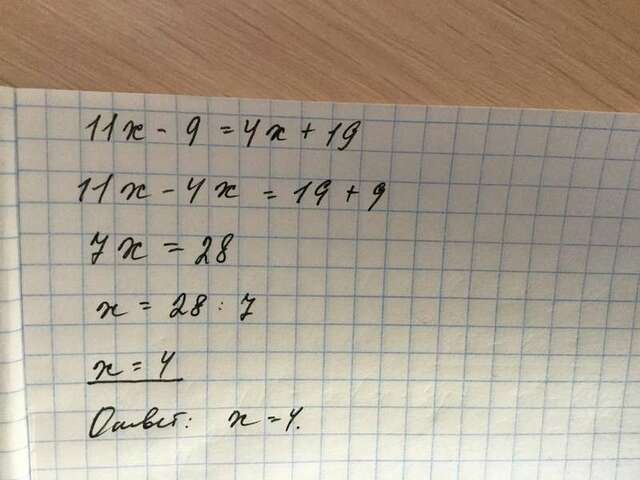 11x - 9 = 4x + 19
11x - 4x = 19 + 9
7x = 28
x = 28 : 7
x = 4
Ответ: x = 4.